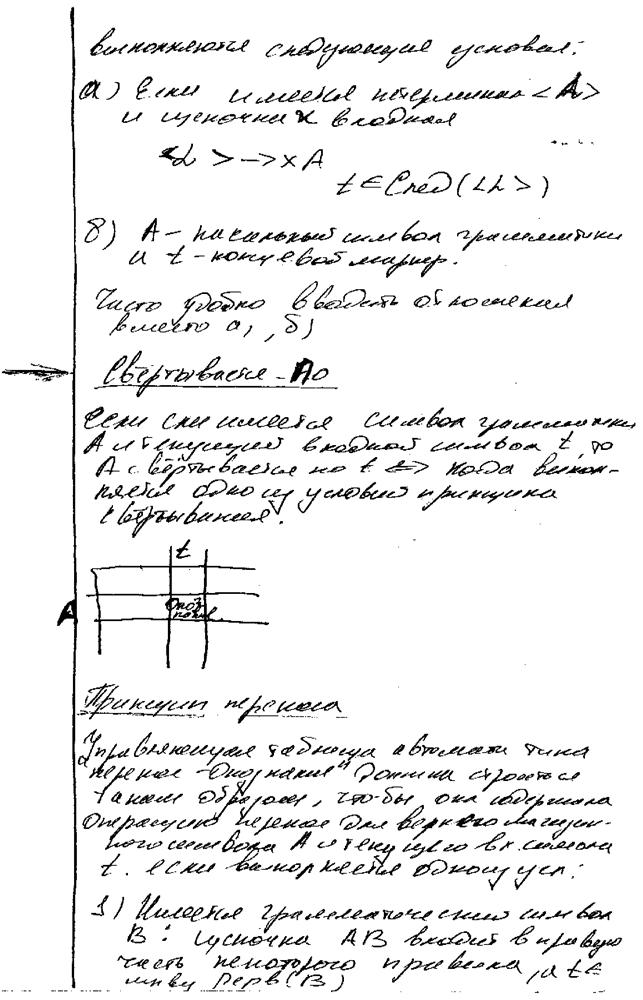 выполняются следующие условия:
а) Если имеется нетерминал <A>
и цепочки x входная
<L> -> x A
t ∈ След(<L>)
б) A - начальный символ грамматики
и t - концевой маркер.
Часто удобно вводить отношения
вместо а), б)
Свёртывается - По
Если имеется символ грамматики
A и текущий входной символ t, то
A свёртывается по t <=> когда выпол-
няется одно из условий принципа
свёртывания.
t
A
Опоз-
нание
Принцип переноса
Управляющая таблица автомата типа
"перенос - Опознание" должна строиться
таким образом, чтобы она содержала
операцию перенос для верхнего магазин-
ного символа A и текущего вх. символа
t. если выполняется одно из усл:
1) Имеется грамматический символ
B: цепочка AB входит в правую
часть некоторого правила, а t ∈
мн-ву Перв(B)